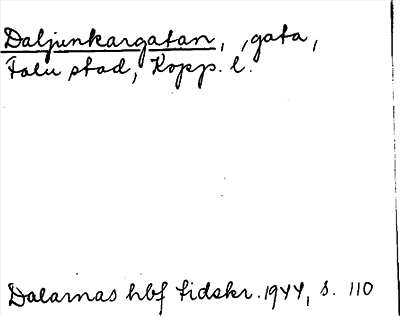 Daljunkargatan, ,gata,
Falu stad, Kopp. l.
Dalarnas hbf tidskr. 1944, s. 110